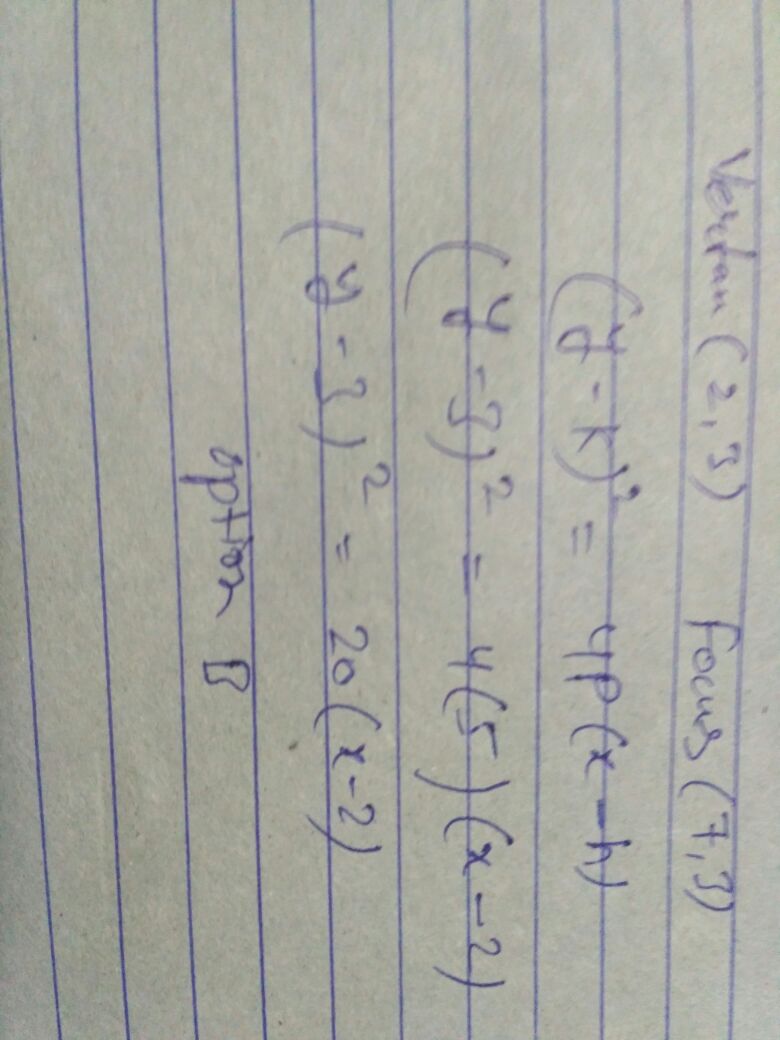 Vertex (2,3) Focus (7,3)
(y-k)² = 4P(x-h)
(y-3)² = 4(5)(x-2)
(y-3)² = 20(x-2)
option